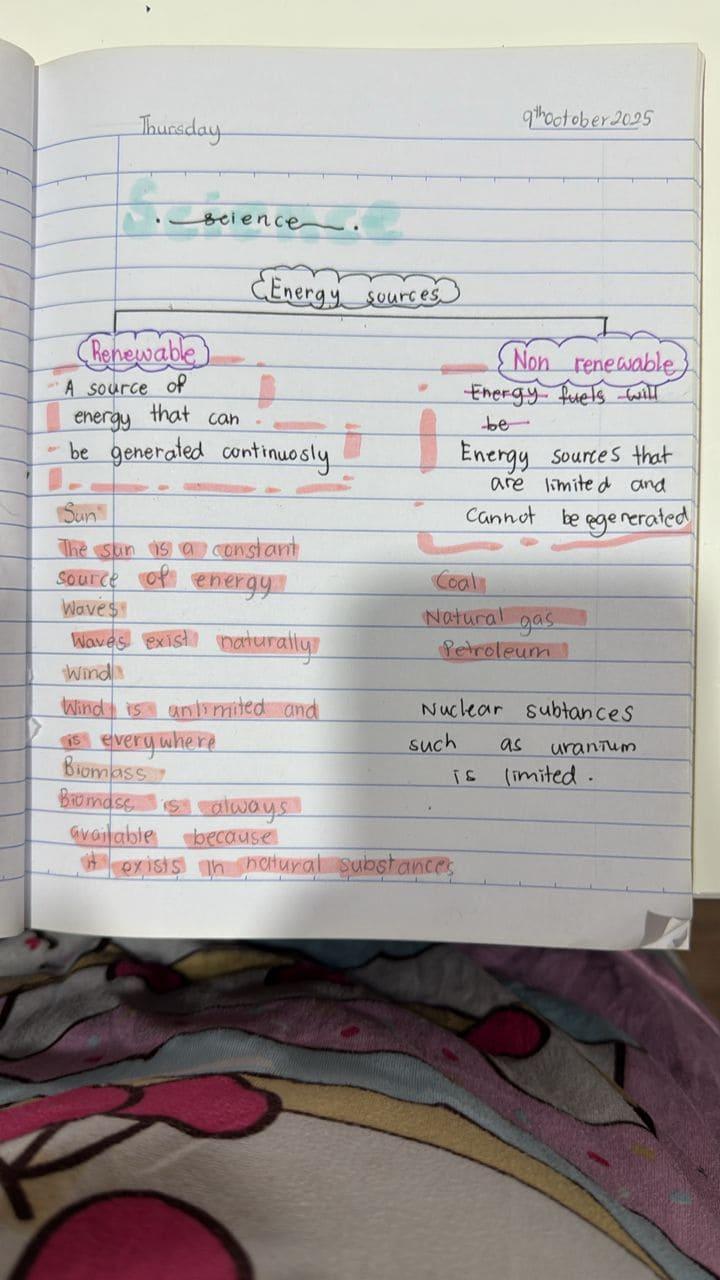 Thursday
9th October 2025
Science
. science .
Energy sources
Renewable
A source of
energy that can
be generated continuosly
Sun
The sun is a constant
source of energy
Waves
Waves exist naturally
Wind
Wind is unlimited and
is everywhere
Biomass
Biomass is always
available because
it exists in natural substances
Non renewable
Energy fuels will
be
Energy sources that
are limited and
cannot be egenerated
Coal
Natural gas
Petroleum
Nuclear subtances
such as uranium
is limited .